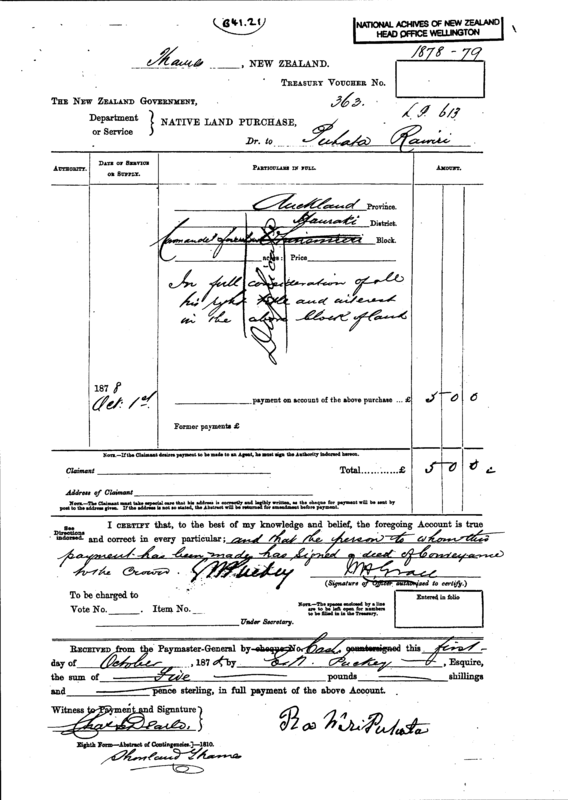 (841.21)
NATIONAL ACHIVES OF NEW ZEALAND
HEAD OFFICE WELLINGTON
Thames, NEW ZEALAND.
1878-79
TREASURY VOUCHER NO.
THE NEW ZEALAND GOVERNMENT,
363.
L.G. 613
Department
or Service
NATIVE LAND PURCHASE,
Dr. to Puhata Rawiri
AUTHORITY.
DATE OF SERVICE
OR SUPPLY.
PARTICULARS IN FULL.
AMOUNT.
Auckland Province.
Hauraki District.
Block.
acres: Price
Duplicate
In full consideration of all
his right title and interest
in the above block of land
1878
Oct: 1st
payment on account of the above purchase ... £ 5 0 0
Former payments £
NOTE.—If the Claimant desires payment to be made to an Agent, he must sign the Authority indorsed hereon.
Claimant
Total............£ 5 0 0
Address of Claimant
NOTE.—The Claimant must take especial care that his address is correctly and legibly written, as the cheque for payment will be sent by
post to the address given. If the address is not so stated, the Abstract will be returned for amendment before payment.
See
Directions
indorsed.
I CERTIFY that, to the best of my knowledge and belief, the foregoing Account is true
and correct in every particular; and that the person to whom this
payment has been made has signed a deed of Conveyance
to the Crown. E W Puckey
(Signature of Officer authorized to certify.)
To be charged to
Vote No. Item No.
NOTE.—The spaces enclosed by a line
are to be left open for numbers
to be filled in in the Treasury.
Entered in folio
Under Secretary.
RECEIVED from the Paymaster-General by cheque No. Cash countersigned this first
day of October, 1878 by E. W. Puckey, Esquire,
the sum of Five pounds shillings
and pence sterling, in full payment of the above Account.
Witness to Payment and Signature
Rawiri Puhata
Eighth Form—Abstract of Contingencies.]—1810.
Shortland Thames